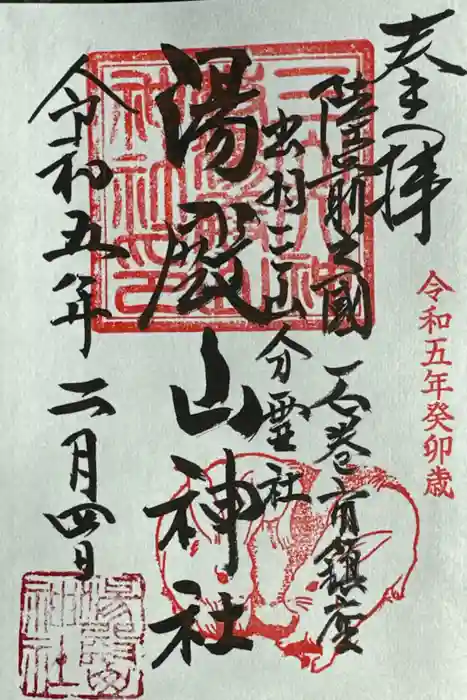 奉拝
令和五年癸卯歳
陸前之國 石巻市鎮座
出羽三山 分霊社
湯殿山神社
令和五年 二月四日
湯殿山
神社